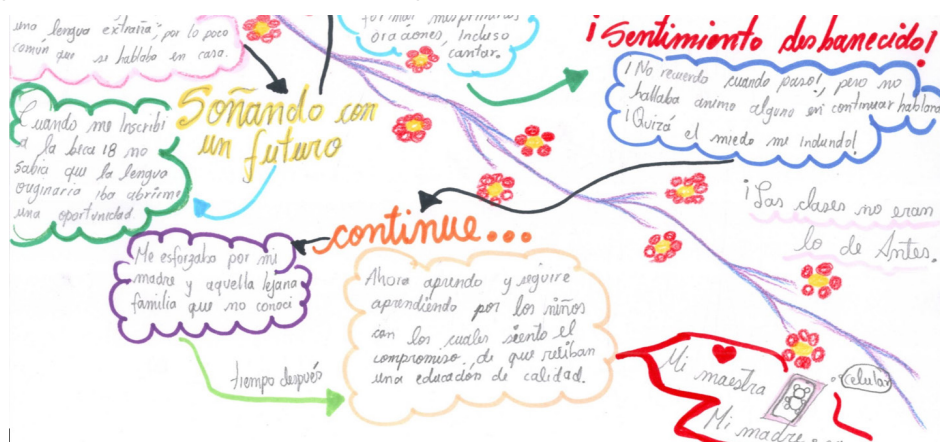 una lengua extraña, por lo poco
común que se hablaba en casa.
formar mis primeras
oraciones, Incluso
cantar.
¡Sentimiento desbanecido!
¡No recuerdo cuando paso!, pero no
hallaba animo alguno en continuar hablando
¡Quizá el miedo me indundo!
Soñando con
un futuro
Cuando me Inscribi
a la beca 18 no
sabia que la lengua
originaria iba abrirme
una oportunidad.
¡Las clases no eran
lo de Antes.
continue...
Me esforzaba por mi
madre y aquella lejana
familia que no conoci
Ahora aprendo y seguire
aprendiendo por los niños
con los cuales siento el
compromiso, de que reciban
una educación de calidad.
tiempo después
Mi maestra
celular
Mi madre